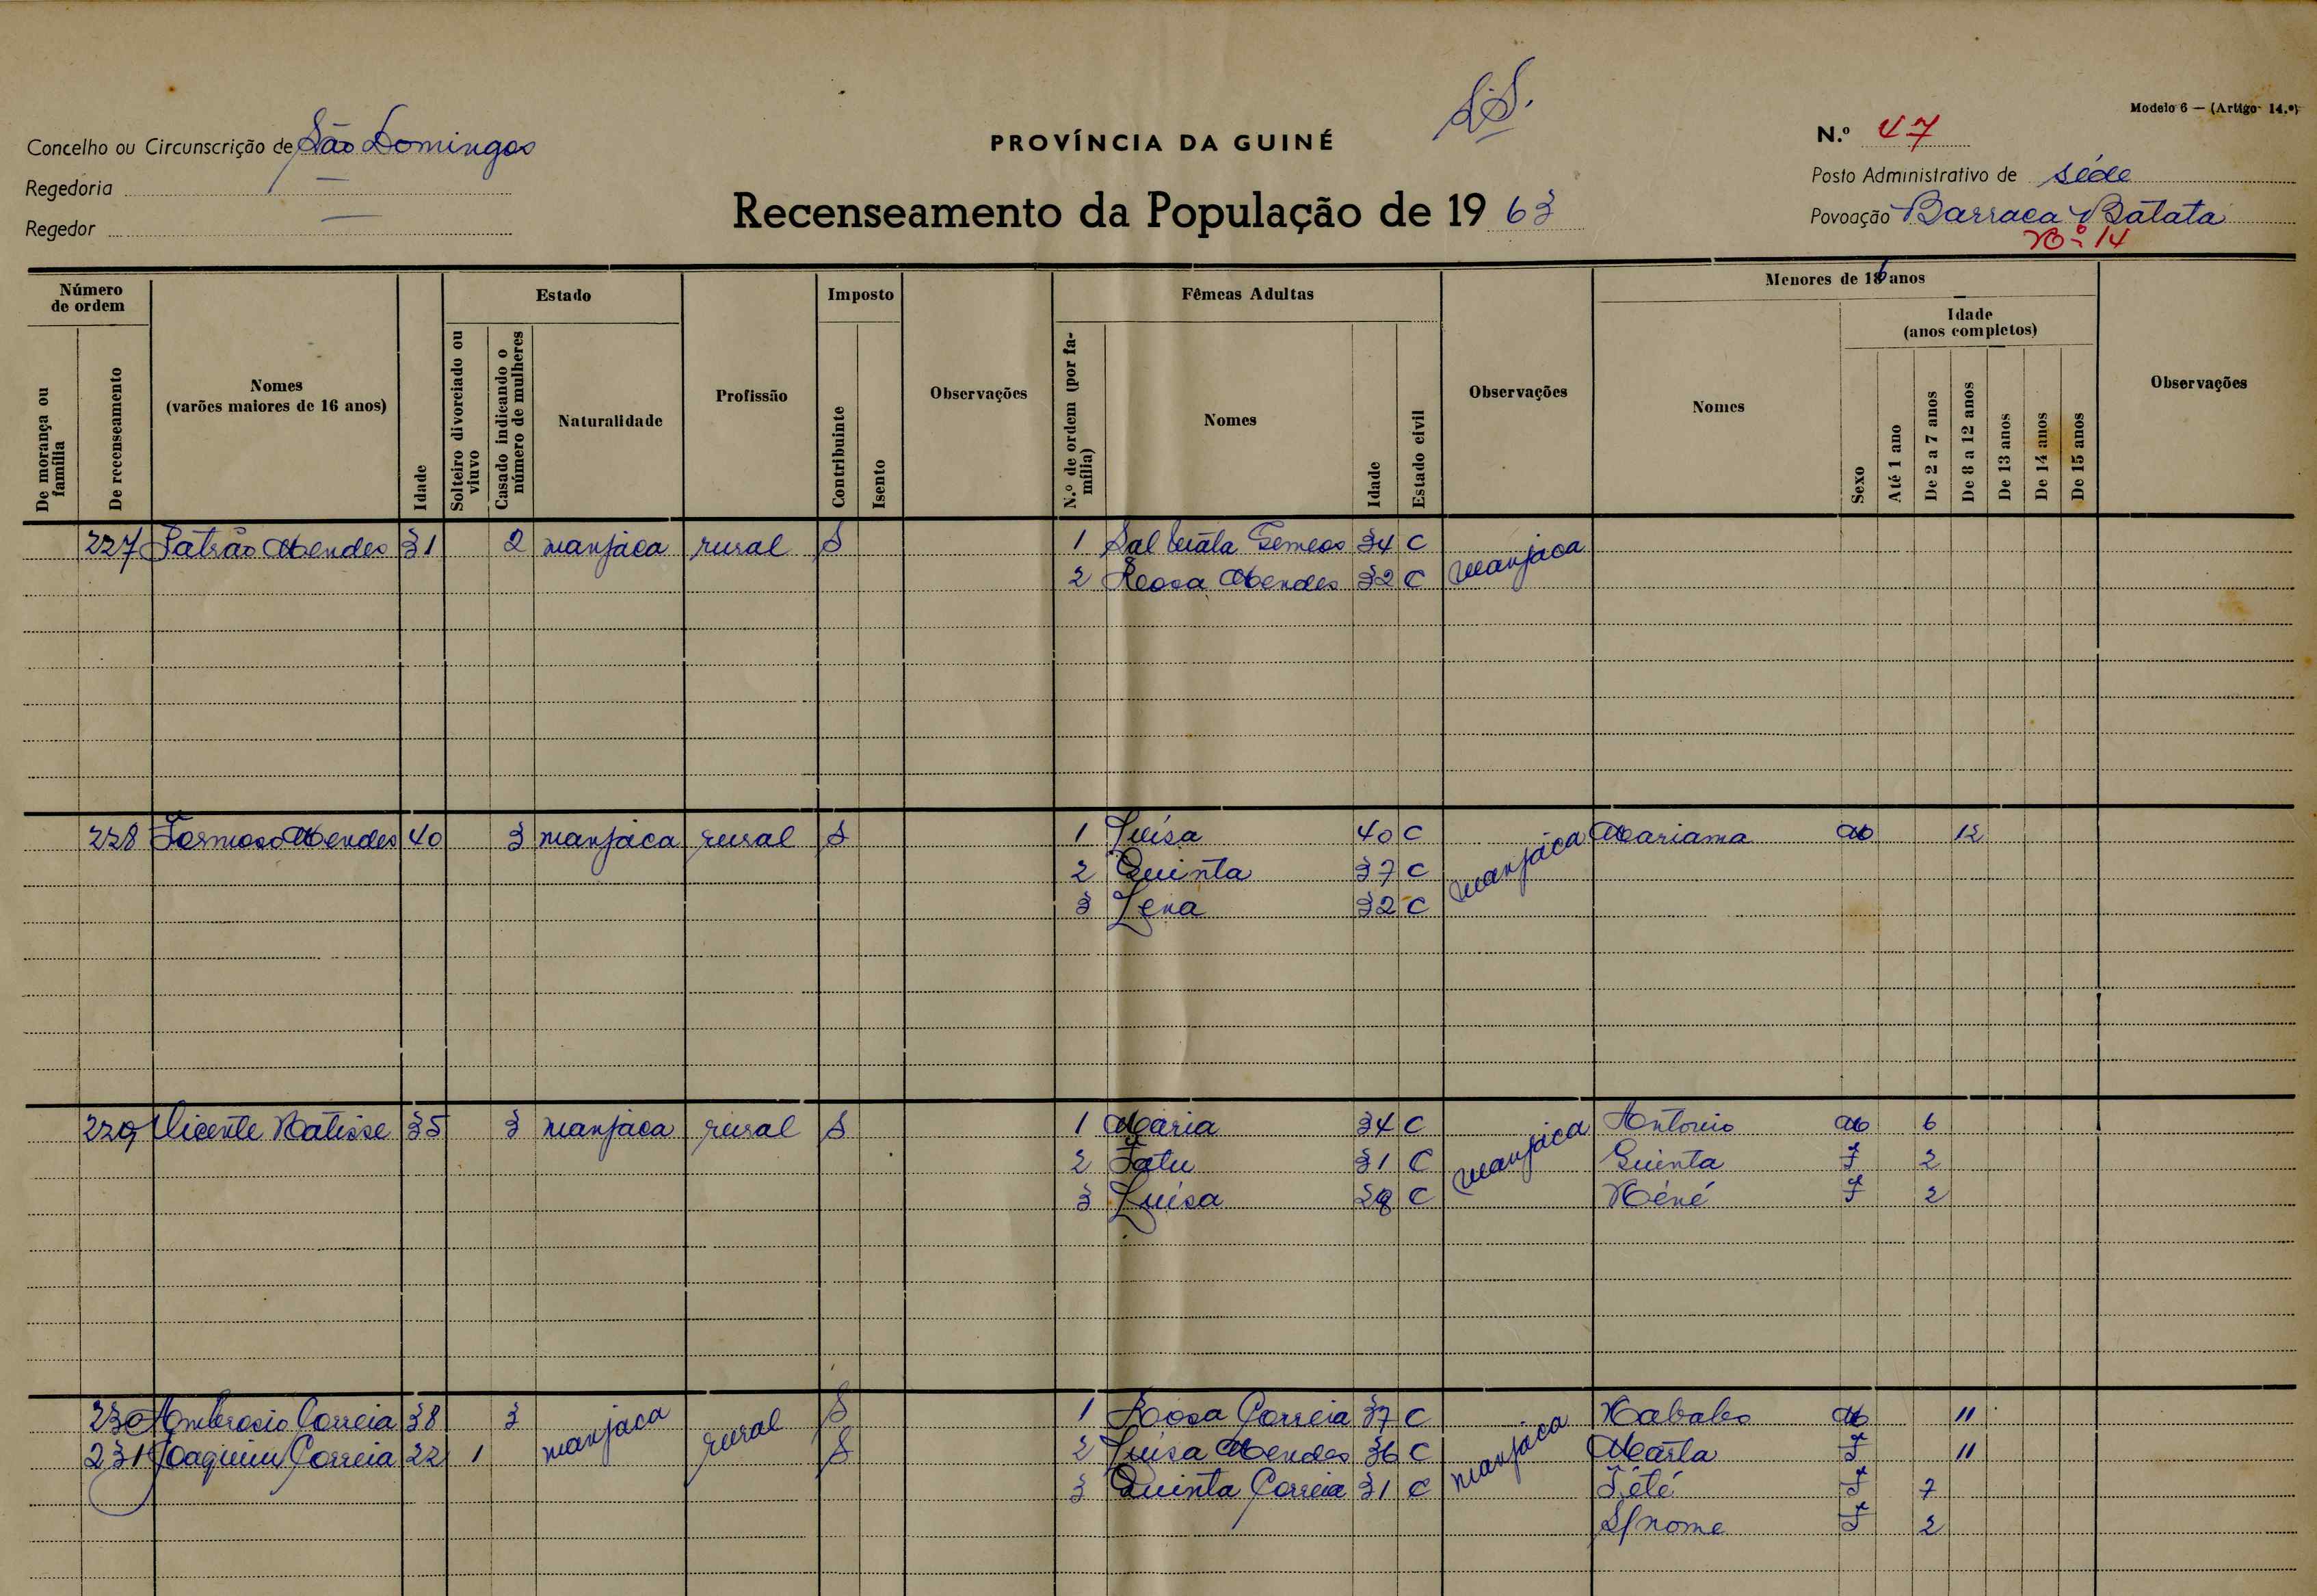 S.S.
Modelo 6 — (Artigo 14.º)
Concelho ou Circunscrição de São Domingos
PROVÍNCIA DA GUINÉ
N.º 47
Regedoria —
Posto Administrativo de séde
Regedor —
Recenseamento da População de 19 63
Povoação Barraca Batata
Nº 14
Número de ordem
De morança ou família
De recenseamento
Nomes (varões maiores de 16 anos)
Idade
Estado
Solteiro divorciado ou viuvo
Casado indicando o número de mulheres
Naturalidade
Profissão
Imposto
Contribuinte
Isento
Observações
Fêmeas Adultas
N.º de ordem (por família)
Nomes
Idade
Estado civil
Observações
Menores de 16 anos
Nomes
Idade (anos completos)
Sexo
Até 1 ano
De 2 a 7 anos
De 8 a 12 anos
De 13 anos
De 14 anos
De 15 anos
Observações
227 Patrão Mendes 31 2 manjaca rural S 1 Gomeos 34 C manjaca
2 Rosa Mendes 32 C
228 Formoso Mendes 40 3 manjaca rural S 1 Luísa 40 C manjaca Mariama M 12
2 Quinta 37 C
3 Zena 32 C
229 Vicente Natisse 35 3 manjaca rural S 1 Maria 34 C manjaca Antonio M 6
2 Fatu 31 C Quinta F 2
3 Luísa 28 C Néné F 2
230 Ambrosio Correia 38 3 manjaca rural S 1 Rosa Correia 37 C manjaca Nababo M 11
231 Joaquim Correia 22 1 S 2 Luisa Mendes 36 C Marta F 11
3 Quinta Correia 31 C Tété F 7
S/nome F 2